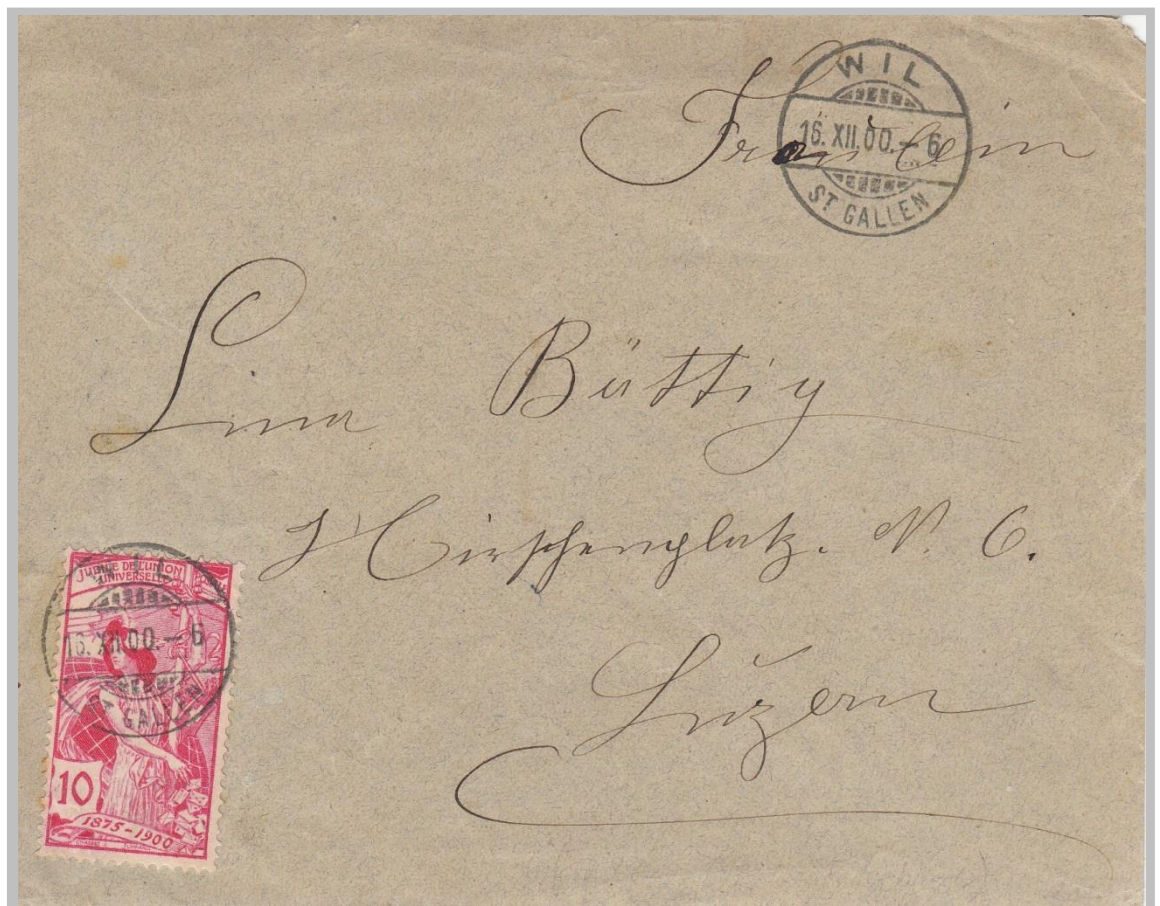 WIL
16. XII. 00. – 6
ST GALLEN
Fräulein
Lina Büttig
Hirschenplatz. N. 6.
Luzern
JUBILÉ DE L'UNION
UNIVERSELLE
WIL
16. XII. 00. – 6
ST GALLEN
10
1875-1900